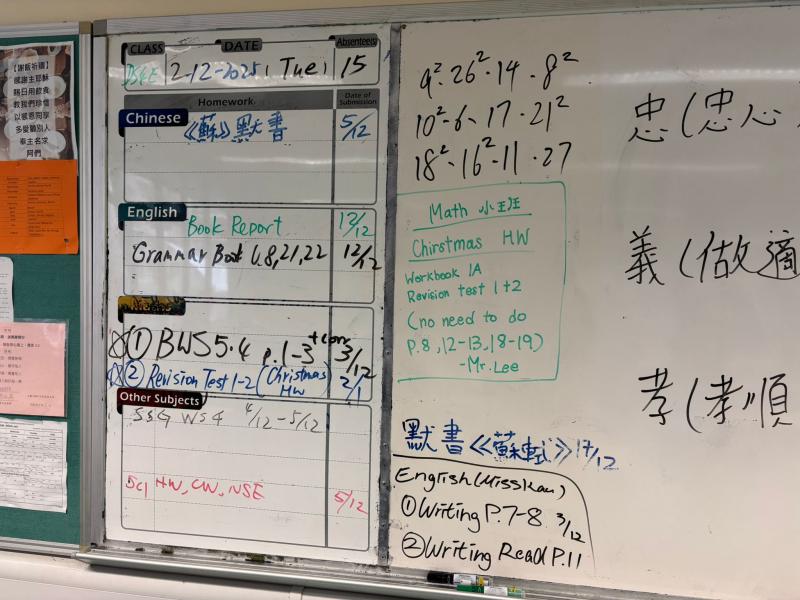 【謝飯祈禱】
感謝主耶穌
賜日用飲食
教我們珍惜
以感恩同享
多愛鄰別人
奉主名求
阿們
CLASS DATE Absentees
2-12-2025, Tue, 15
Homework Date of Submission
Chinese 《蘇》默書 5/12
English
Book Report 12/12
Grammar Book 6,8,21,22 12/12
Maths
① BWS5.4 p.1-3 + corr 3/12
② Revision Test 1-2 (Christmas HW 2/1
Other Subjects
SSG WS4 4/12-5/12
Sci HW, CW, NSE 5/12
9²·26²·14·8²
10²·6·17·21²
18²·16²·11·27
Math 小班
Chirstmas HW
Workbook 1A
Revision test 1+2
(no need to do
P.8,12-13,18-19)
-Mr. Lee
默書《蘇軾》17/12
English (Miss Kau)
①Writing P.7-8 3/12
②Writing Read P.11
忠(忠心
義(做適
孝(孝順